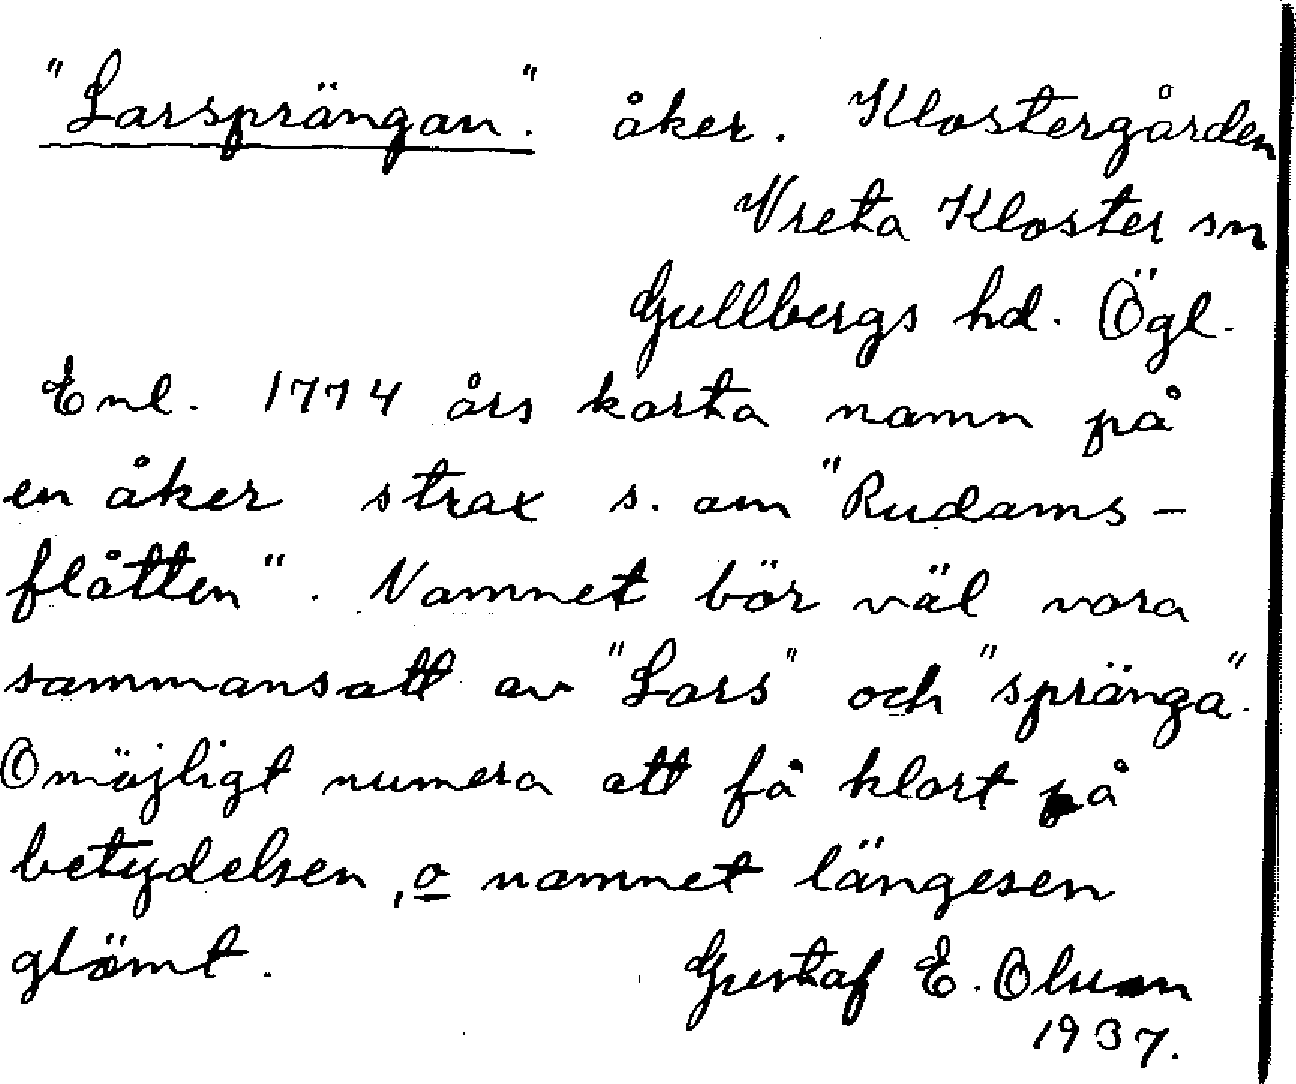 "Larsprängan". åker. Klostergården
Vreta Kloster sn
Gullbergs hd. Ögl.
Enl. 1774 års karta namn på
en åker strax s. om "Rudams-
flåtten". Namnet bör väl vara
sammansatt av "Lars" och "spränga".
Omöjligt numera att få klart på
betydelsen, o namnet längesen
glömt.
Gustaf E. Olsson
1937.